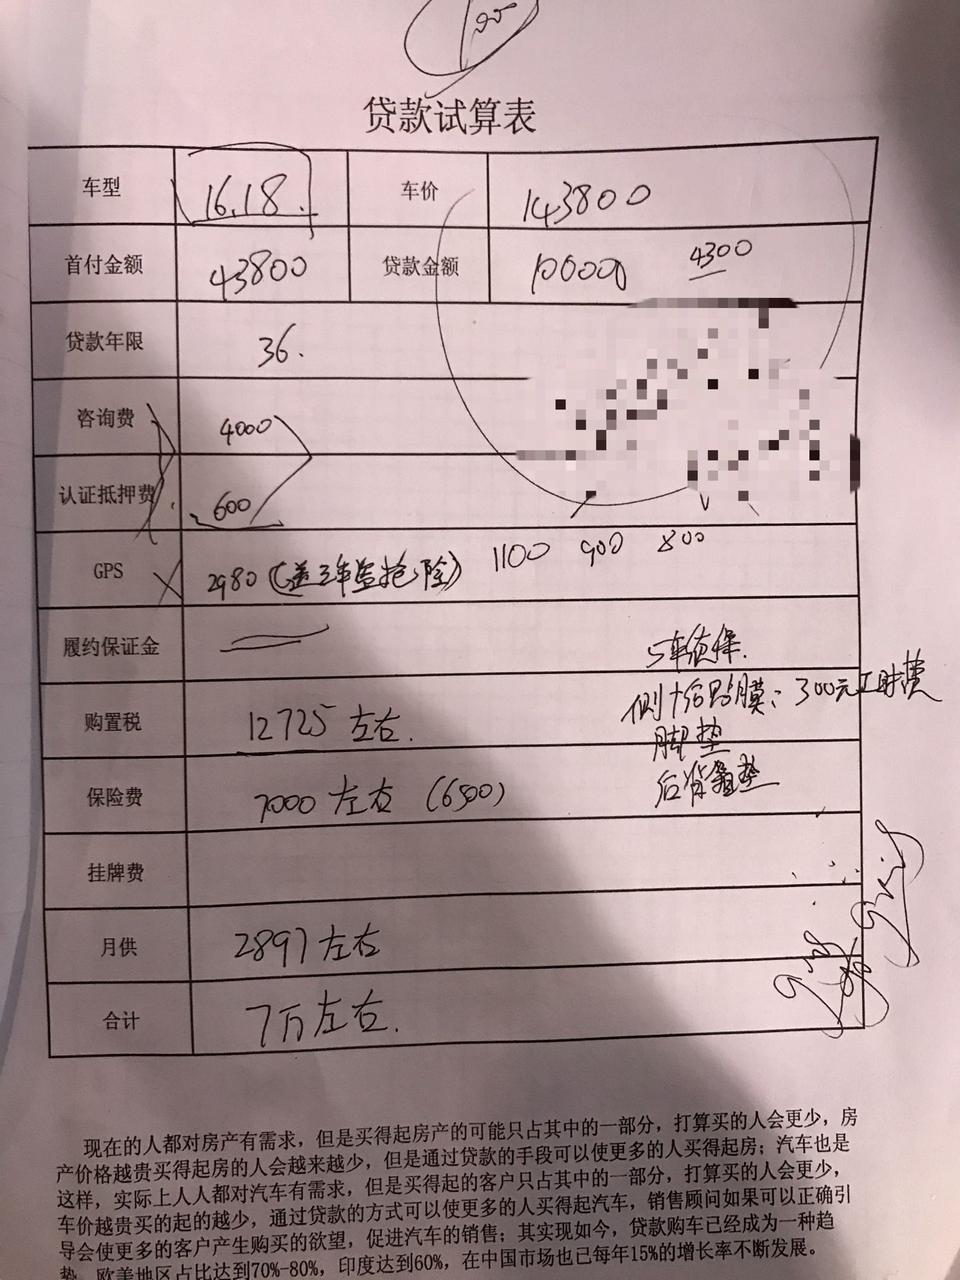 贷款试算表
车型 16.18. 车价 143800
首付金额 43800 贷款金额 100000 4300
贷款年限 36.
咨询费 4000
认证抵押费 600
GPS 2980(送三年盗抢险) 1100 900 800
履约保证金
购置税 12725 左右.
侧+后贴膜: 300元工时费
脚垫
保险费 7000 左右 (6500)
挂牌费
月供 2897 左右
合计 7万左右.
现在的人都对房产有需求,但是买得起房产的可能只占其中的一部分,打算买的人会更少,房
产价格越贵买得起房的人会越来越少,但是通过贷款的手段可以使更多的人买得起房;汽车也是
这样,实际上人人都对汽车有需求,但是买得起的客户只占其中的一部分,打算买的人会更少,
车价越贵买的起的越少,通过贷款的方式可以使更多的人买得起汽车,销售顾问如果可以正确引
导会使更多的客户产生购买的欲望,促进汽车的销售;其实现如今,贷款购车已经成为一种趋
势,欧美地区占比达到70%-80%,印度达到60%,在中国市场也已每年15%的增长率不断发展。